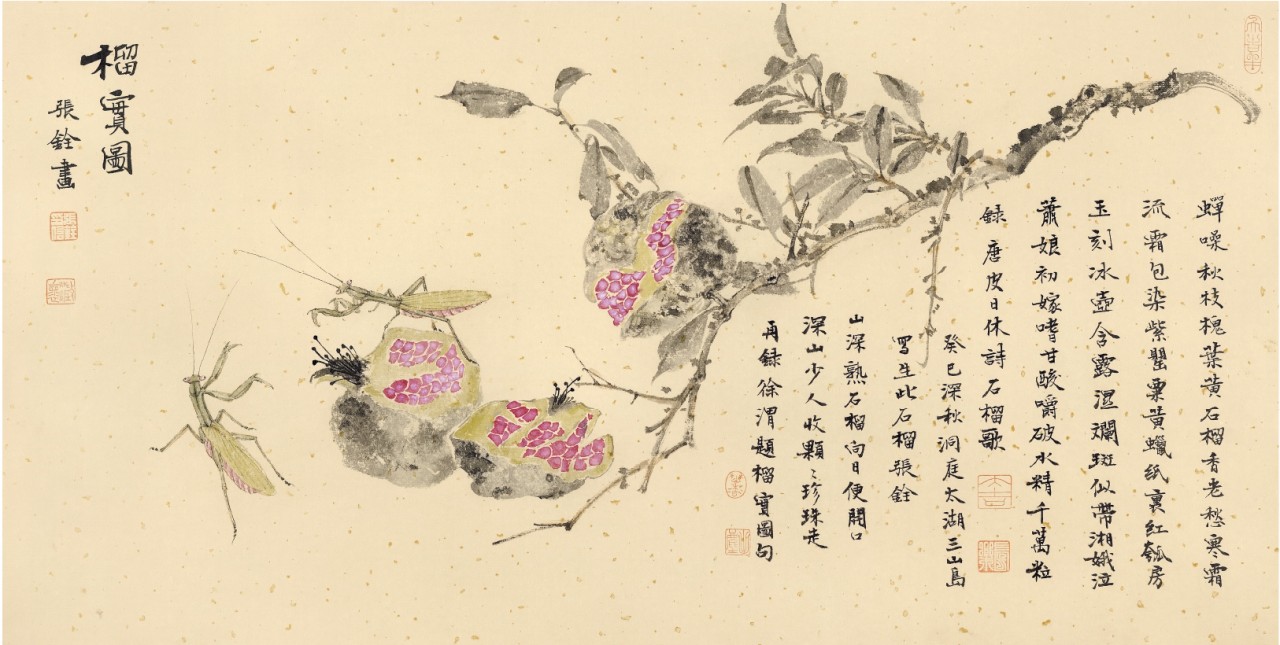 蟬噪秋枝槐葉黄石榴香老愁寒霜
流霜包染紫罌粟黄蠟纸裹红瓠房
玉刻冰壺含露濕斕斑似帶湘娥泣
蕭娘初嫁嗜甘酸嚼破水精千萬粒
録唐皮日休詩石榴歌
癸巳深秋洞庭太湖三山島
寫生此石榴張銓
山深熟石榴向日便開口
深山少人收顆〻珍珠走
再録徐渭題榴實圖句
榴實圖
張銓畫